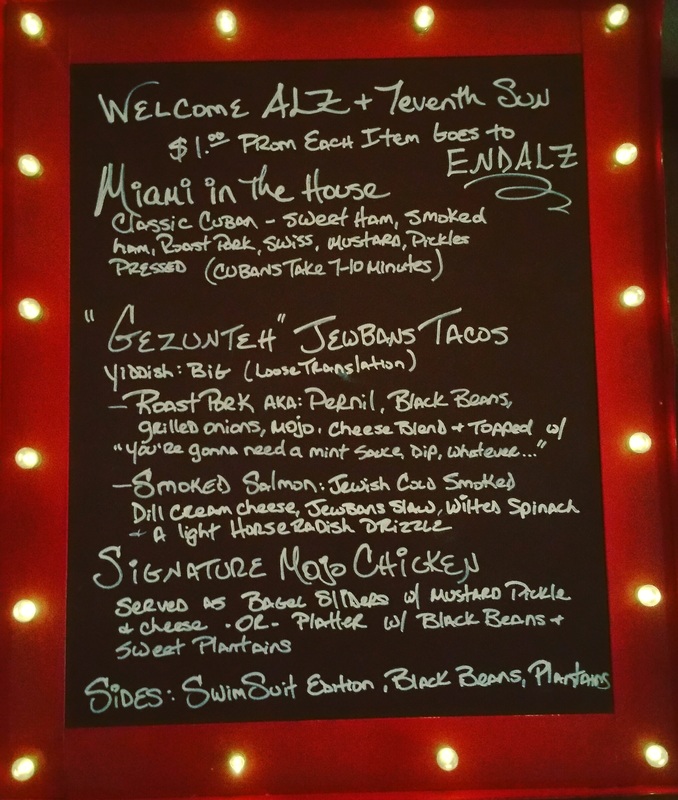 WELCOME ALZ + 7eventh Sun
$1.00 From Each Item Goes to
ENDALZ
Miami in The House
Classic Cuban - Sweet Ham, Smoked
Ham, Roast Pork, Swiss, Mustard, Pickles
PRESSED (CUBANS Take 7-10 Minutes)
"GEZUNTEH" JEWBANS TACOS
Yiddish: Big (Loose Translation)
- Roast Pork AKA: Pernil, Black Beans,
grilled onions, mojo, Cheese Blend + Topped w/
"You're gonna need a mint Sauce, Dip, whatever..."
- Smoked Salmon: Jewish Cold Smoked
Dill Cream cheese, JewBans Slaw, Wilted Spinach
+ A light HORSERADISH DRIZZLE
SIGNATURE MOJO CHICKEN
SERVED AS BAGEL SLIDERS w/ MUSTARD Pickle
& cheese - OR - Platter w/ Black Beans +
Sweet Plantains
SIDES: SwimSuit Edition, Black Beans, Plantains